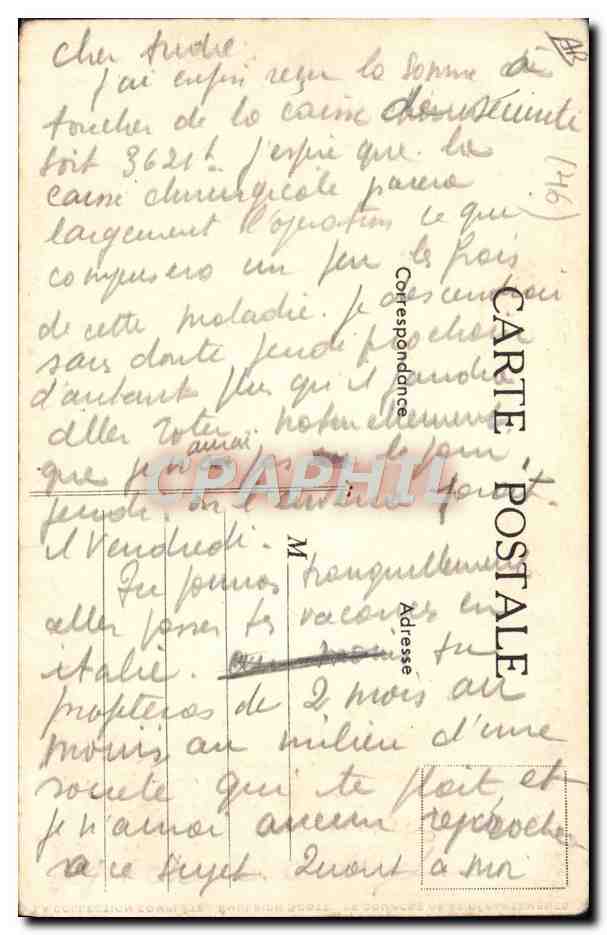 cher André.
j'ai enfin reçu la somme à
toucher de la caisse de sécurité
soit 3621f. j'espère que la
caisse chirurgicale paiera
largement l'opération ce qui
compensera un peu les frais
de cette maladie. je descendrai
sans doute jeudi prochain
d'autant plus qu'il faudra
aller voter. naturellement
que je n'aurai pas le jour
jeudi. on l'enterre
el Vendredi.
Tu pourras tranquillement
aller passer tes vacances en
italie. tu
profiteras de 2 mois au
moins au milieu d'une
société qui te plait et
je n'aurai aucun reproche
a ce sujet. Quant à moi
CARTE POSTALE
Correspondance
Adresse
M
CPAPHIL
AB
(46)